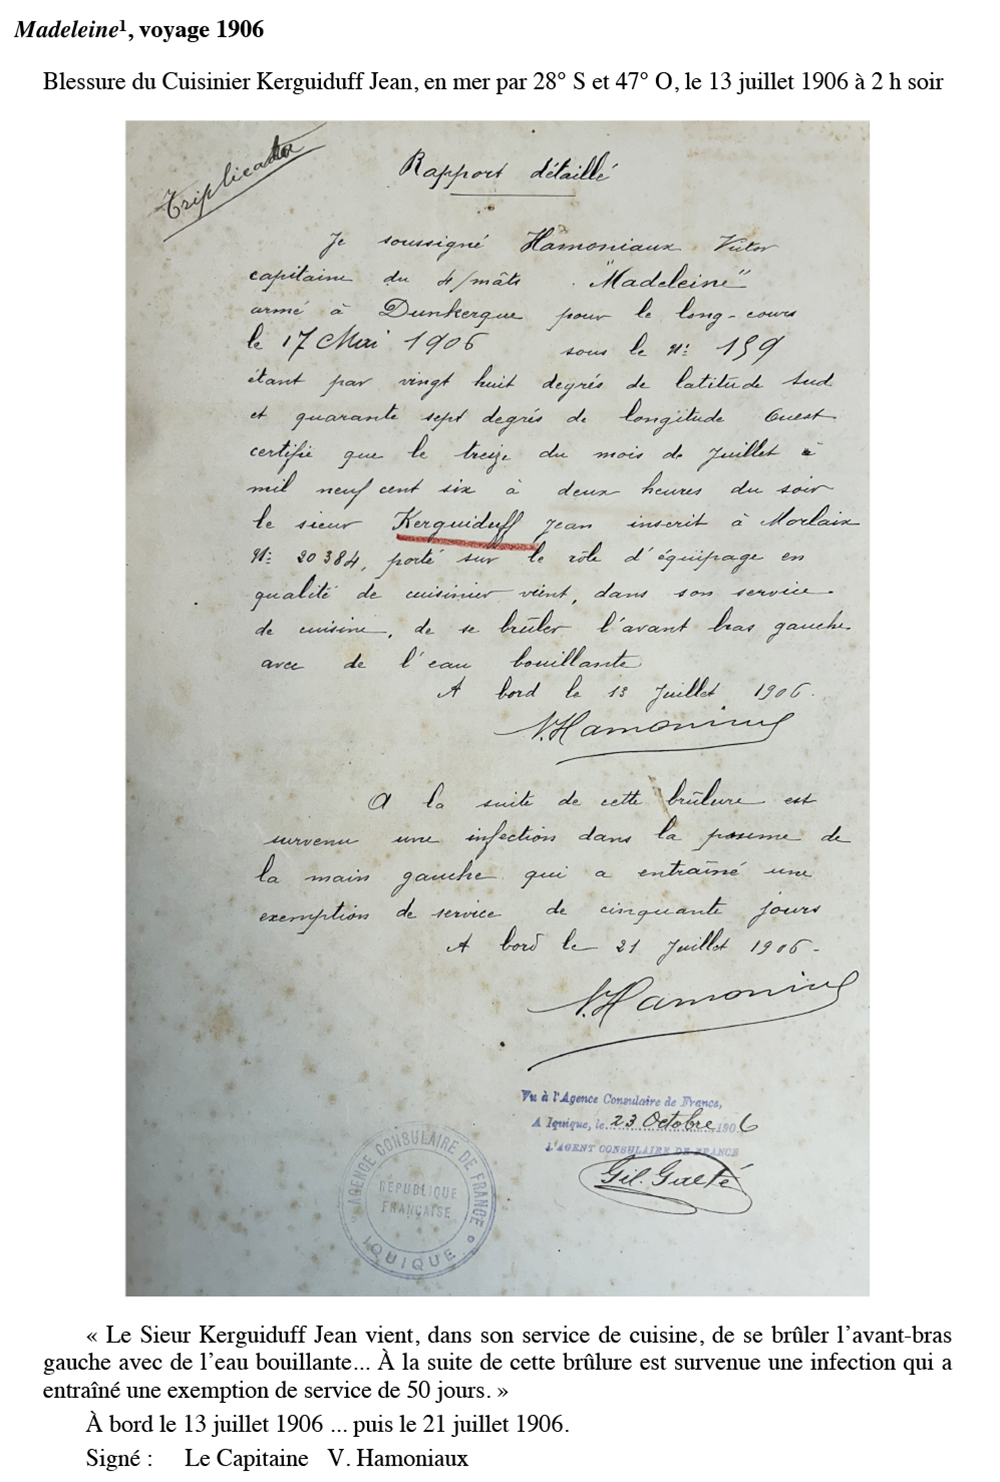 Madeleine¹, voyage 1906
Blessure du Cuisinier Kerguiduff Jean, en mer par 28° S et 47° O, le 13 juillet 1906 à 2 h soir
Triplicata
Rapport détaillé
Je soussigné Hamoniaux Victor
capitaine du 4/mâts "Madeleine"
armé à Dunkerque pour le long-cours
le 17 Mai 1906 sous le N: 159
étant par vingt huit degrés de latitude Sud
et quarante sept degrés de longitude Ouest
certifie que le treize du mois de Juillet
mil neuf cent six à deux heures du soir
le sieur Kerguiduff Jean inscrit à Morlaix
N: 20384, porté sur le rôle d'équipage en
qualité de cuisinier vient, dans son service
de cuisine, de se brûler l'avant bras gauche
avec de l'eau bouillante
A bord le 13 Juillet 1906.
V.Hamoniaux
A la suite de cette brûlure est
survenu une infection dans la paume de
la main gauche qui a entraîné une
exemption de service de cinquante jours
A bord le 21 Juillet 1906-
V.Hamoniaux
Vu à l'Agence Consulaire de France,
A Iquique, le 23 Octobre 1906
L'AGENT CONSULAIRE DE FRANCE
AGENCE CONSULAIRE DE FRANCE
RÉPUBLIQUE
FRANÇAISE
IQUIQUE
« Le Sieur Kerguiduff Jean vient, dans son service de cuisine, de se brûler l'avant-bras
gauche avec de l'eau bouillante... À la suite de cette brûlure est survenue une infection qui a
entraîné une exemption de service de 50 jours. »
À bord le 13 juillet 1906 ... puis le 21 juillet 1906.
Signé : Le Capitaine V. Hamoniaux